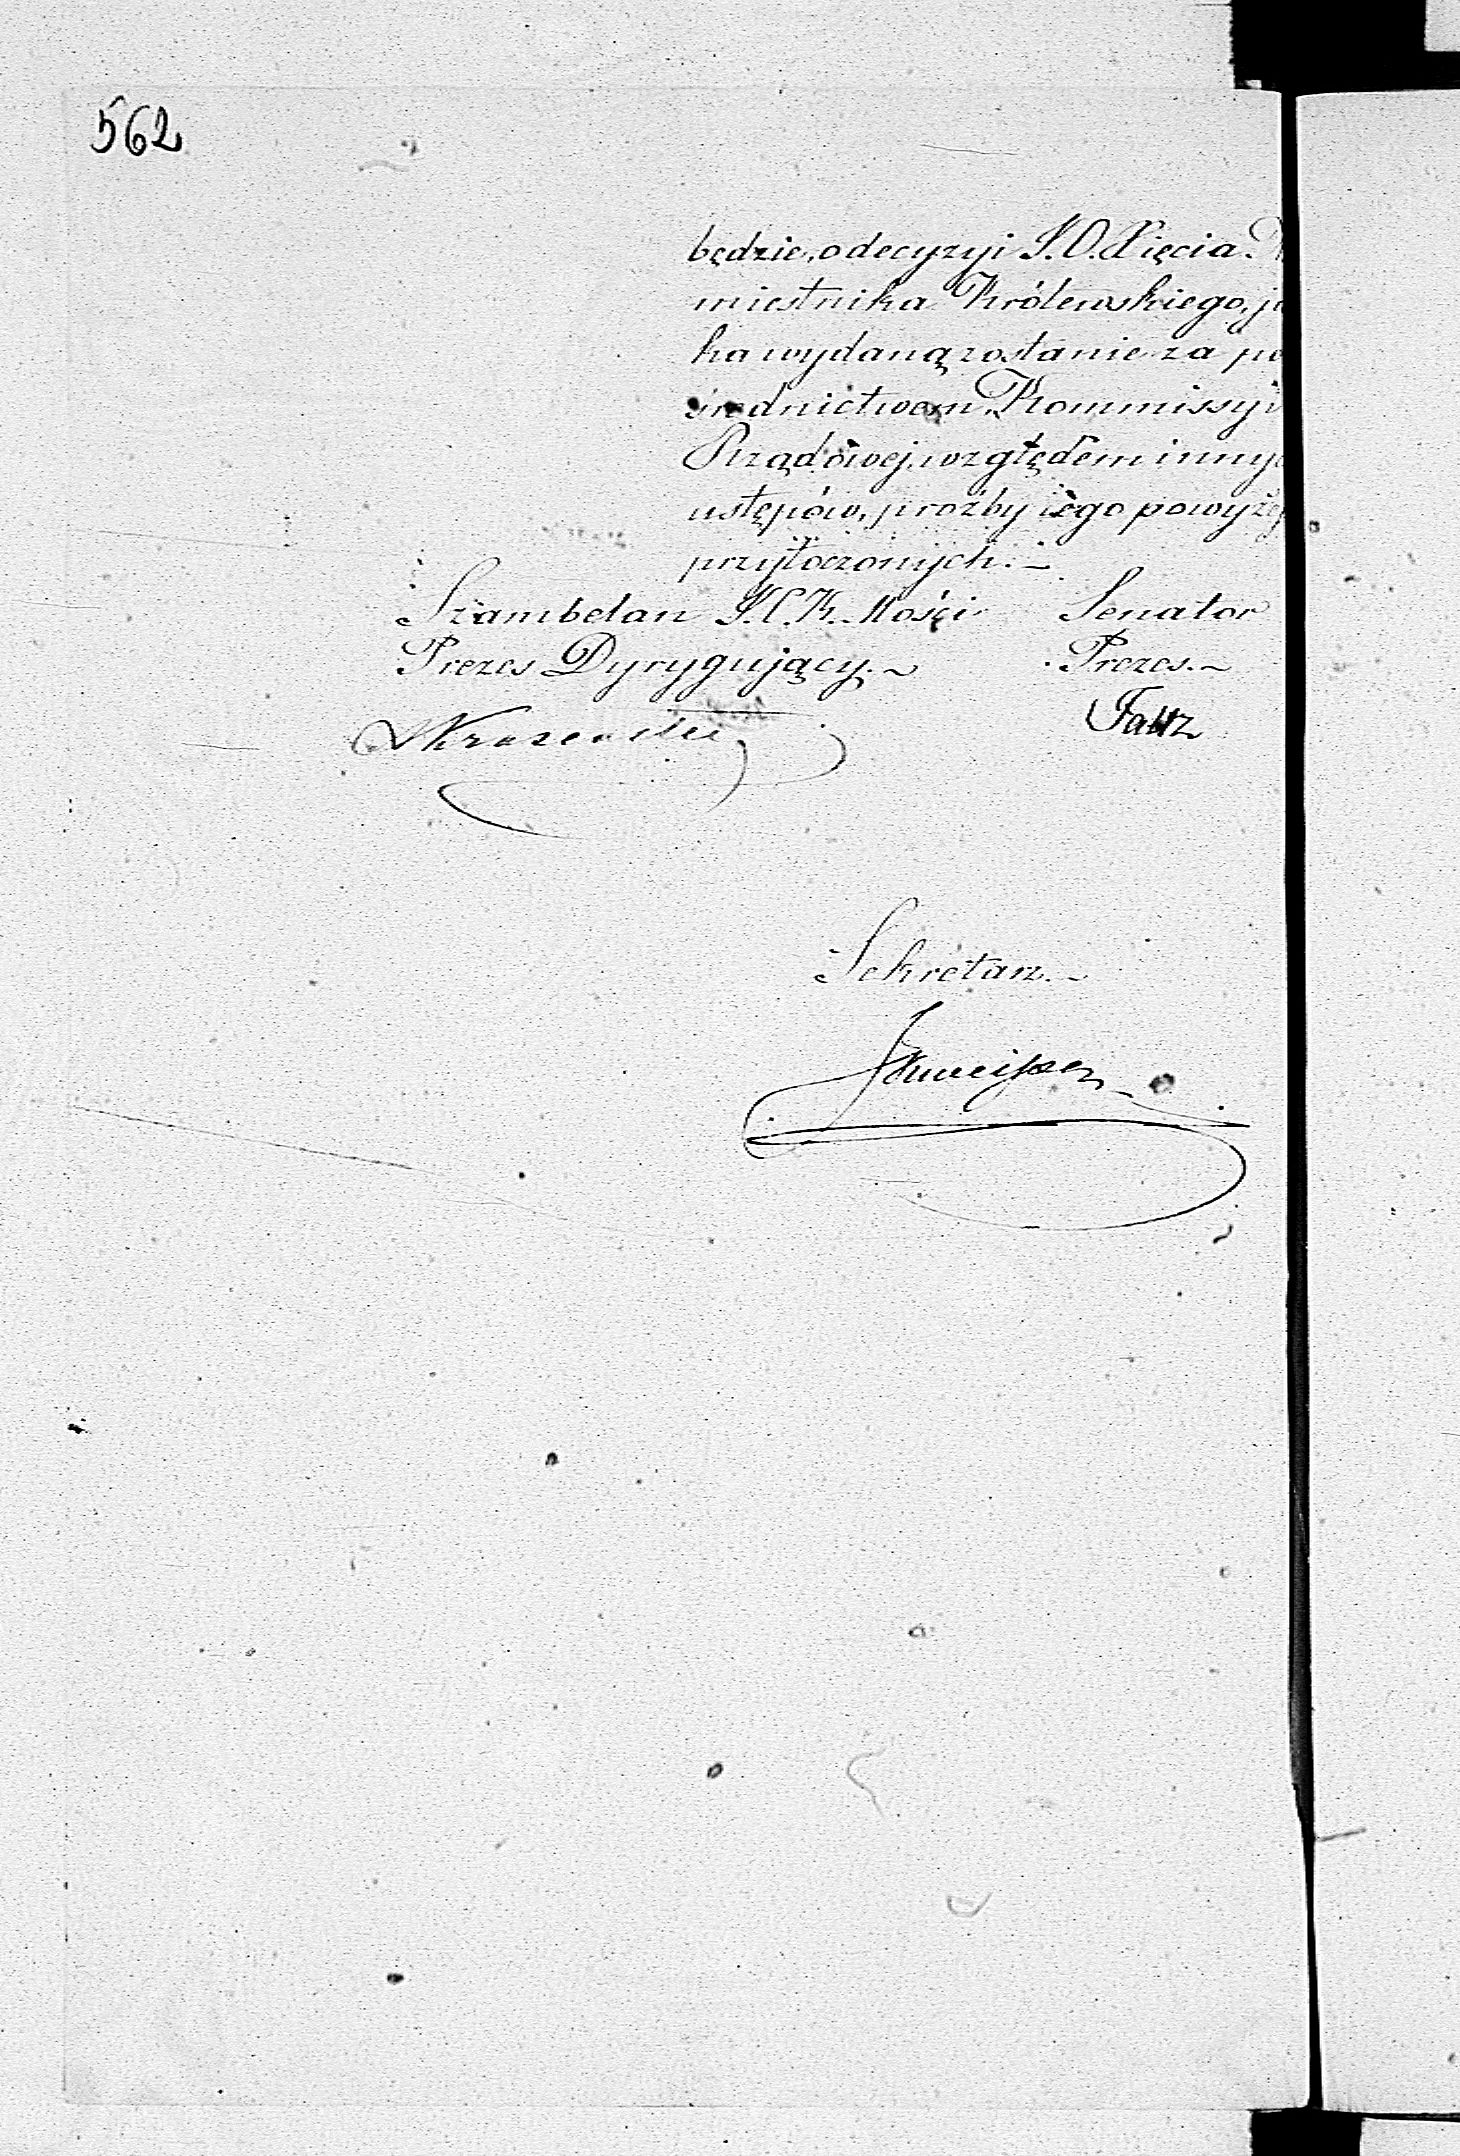 562
będzie, o decyzyi J. O. Xięcia
miestnika Królewskiego, ja
ka wydaną zostanie za po
średnictwem Kommissyi
Rządowej, względem innyc
ustępów, prozby iego powyżej
przytoczonych.—
Szambelan J. C. K. Mości Senator
Prezes Dyrygujący.~ Prezes.~
Sekretarz.~